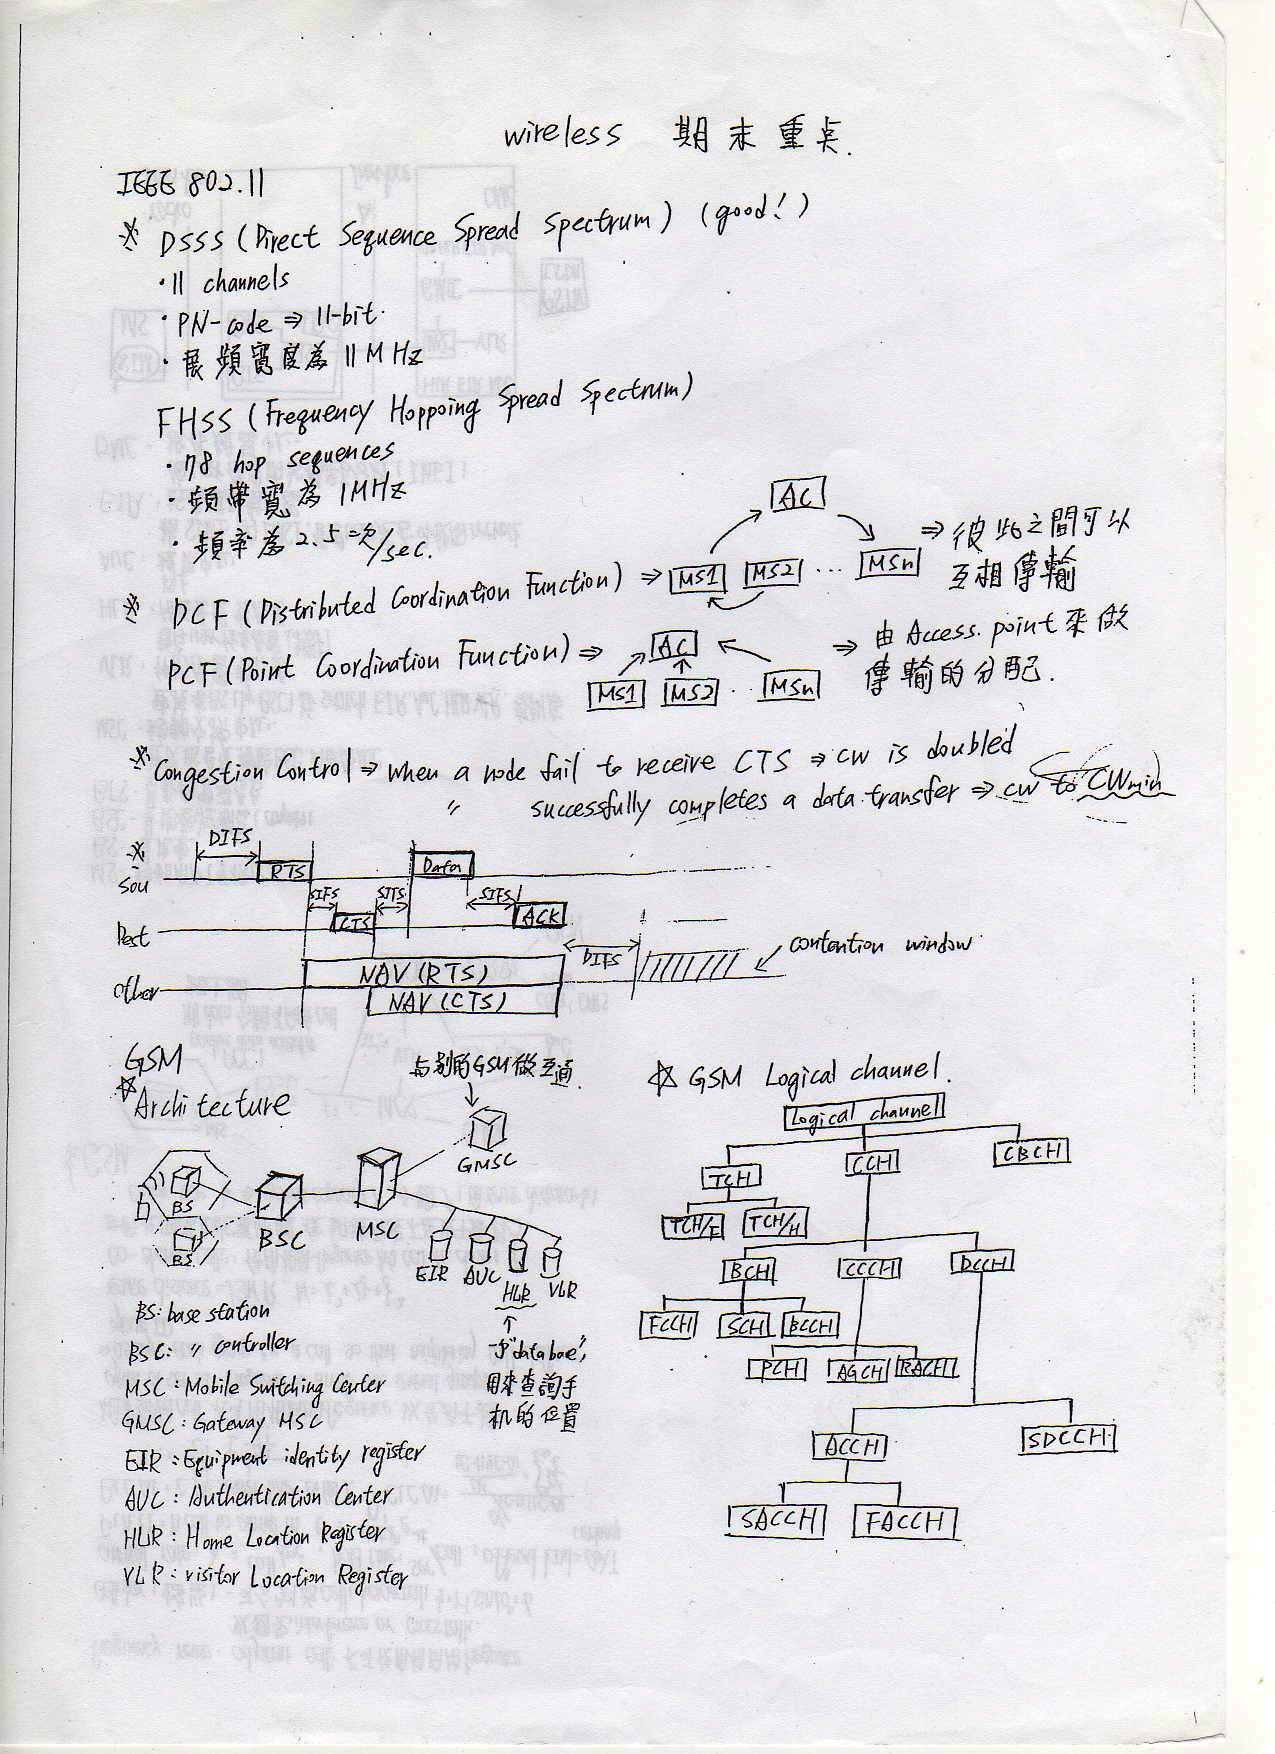 wireless 期末重点.
IEEE 802.11
※ DSSS (Direct Sequence Spread Spectrum) (good!)
・11 channels
・PN-code ⇒ 11-bit.
・展頻寬度為 11MHz
FHSS (Frequency Hoppoing Spread Spectrum)
・78 hop sequences
・頻帶寬為 1MHz
・頻率為 2.5次/sec.
※ DCF (Distributed Coordination Function) ⇒
AC
MS1 MS2 ... MSn
⇒ 彼此之間可以
互相傳輸
PCF (Point Coordination Function) ⇒
AC
MS1 MS2 .. MSn
⇒ 由 Access point 來做
傳輸的分配.
※ Congestion Control ⇒ when a node fail to receive CTS ⇒ cw is doubled
〃 successfully completes a data transfer ⇒ cw to CWmin
※
DIFS
Sou RTS Data
SIFS SIFS SIFS
Dest CTS ACK
DIFS contention window
Other NAV (RTS)
NAV (CTS)
GSM
☆ Architecture
与別的GSM做互通.
GMSC
BS
BS
BSC
MSC
EIR AUC HLR VLR
BS: base station
BSC: 〃 controller
MSC: Mobile Switching Center
GMSC: Gateway MSC
EIR: Equipment identity register
AUC: Authentication Center
HLR: Home Location Register
VLR: visitor Location Register
用來查詢手
机的位置
☆ GSM Logical channel.
Logical channel
TCH CCH CBCH
TCH/F TCH/H
BCH CCCH DCCH
FCCH SCH BCCH
PCH AGCH RACH
ACCH SDCCH
SACCH FACCH